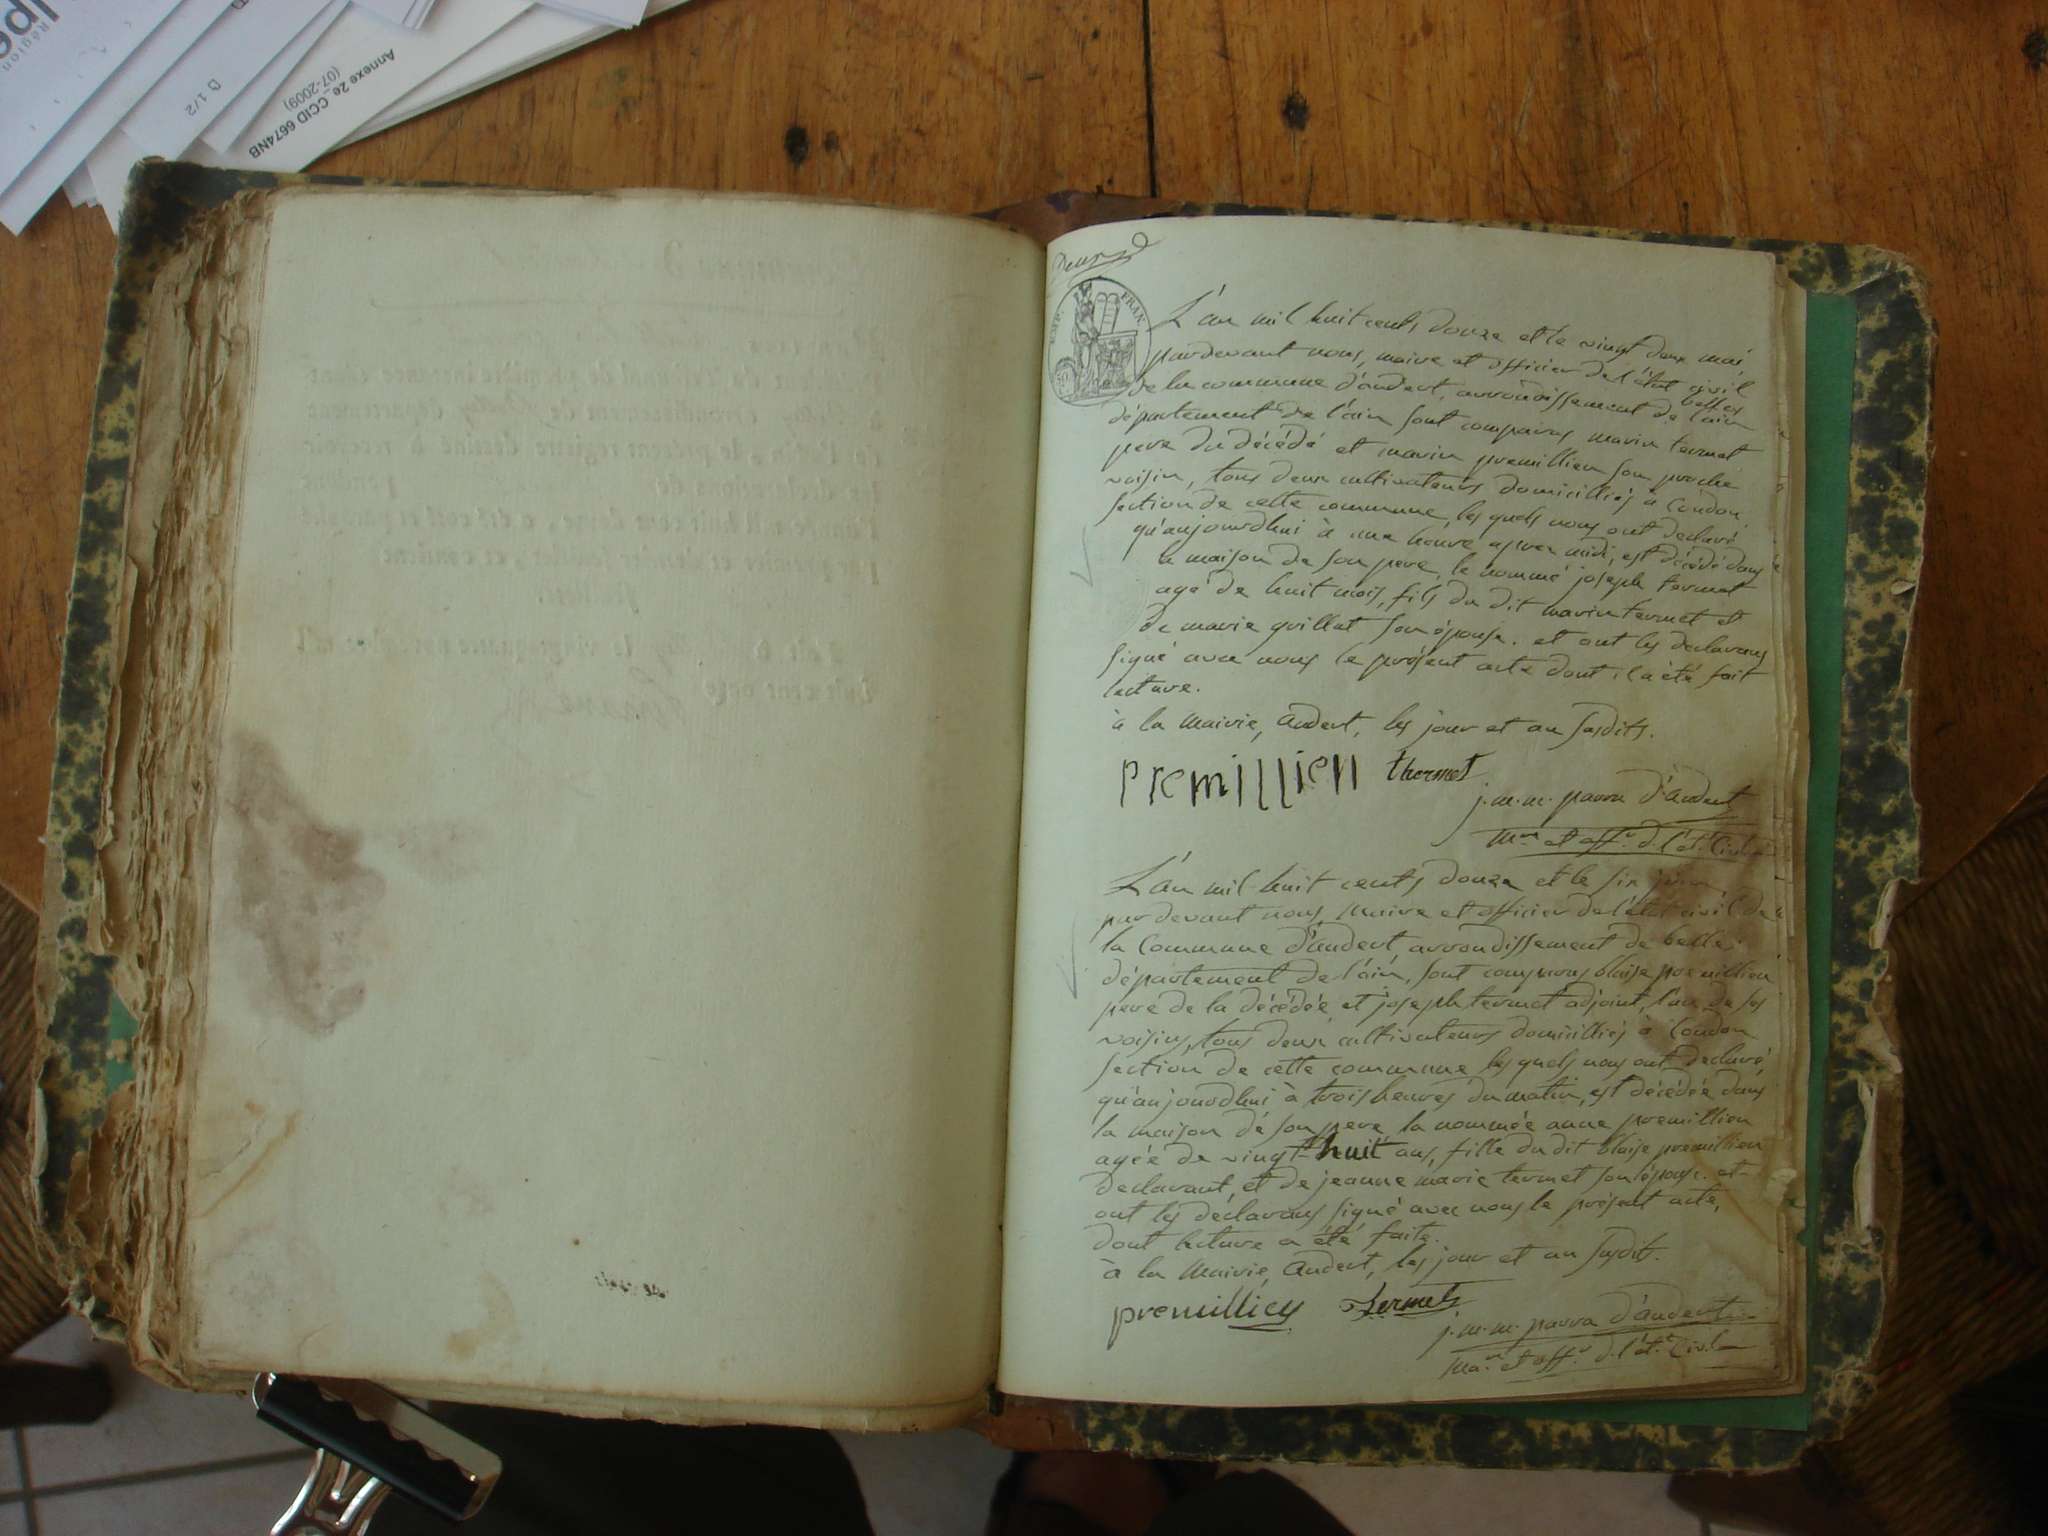 Région
1/2
Annexe 2e_CCID 6674NB
(07-2009)
EMP. FRAN.
L'an mil huit cents douze et le vingt deux mai,
pardevant nous, maire et officier de l'état civil
de la commune d'andert, arrondissement de belley
département de l'ain sont comparus marin termet
pere du décédé et marin premillieu son proche
voisin, tous deux cultivateurs domiciliés à Condon
section de cette commune, les quels nous ont declaré
qu'aujourdhui à une heure apres midi, est décédé dans
la maison de son pere, le nommé joseph termet
agé de huit mois, fils du dit marin termet et
de marie guillot son épouse. et ont les declarans
signé avec nous le présent acte dont il a été fait
lecture.
à la Mairie, Andert, les jour et an susdits.
premillieu thermet
j. m. m. parra d'andert
mre et offr d. l'ét. Civil
L'an mil huit cents douze et le six juin,
par devant nous, Maire et officier de l'état civil de
la Commune d'andert, arrondissement de belley
département de l'ain, sont comparus blaise premillieu
pere de la décédée, et joseph termet adjoint, l'un de ses
voisins, tous deux cultivateurs domiciliés à Condon
section de cette commune les quels nous ont declaré
qu'aujourdhui à trois heures du matin, est décédée dans
la maison de son pere la nommée anne premillieu
agée de vingt-huit ans, fille du dit blaise premillieu
declarant, et de jeanne marie termet son épouse. et
ont les declarans signé avec nous le présent acte,
dont lecture a été faite.
à la Mairie, Andert, les jour et an susdits.
premillieu Termet
j. m. m. parra d'andert
ma.re et offr d. l'ét. Civil